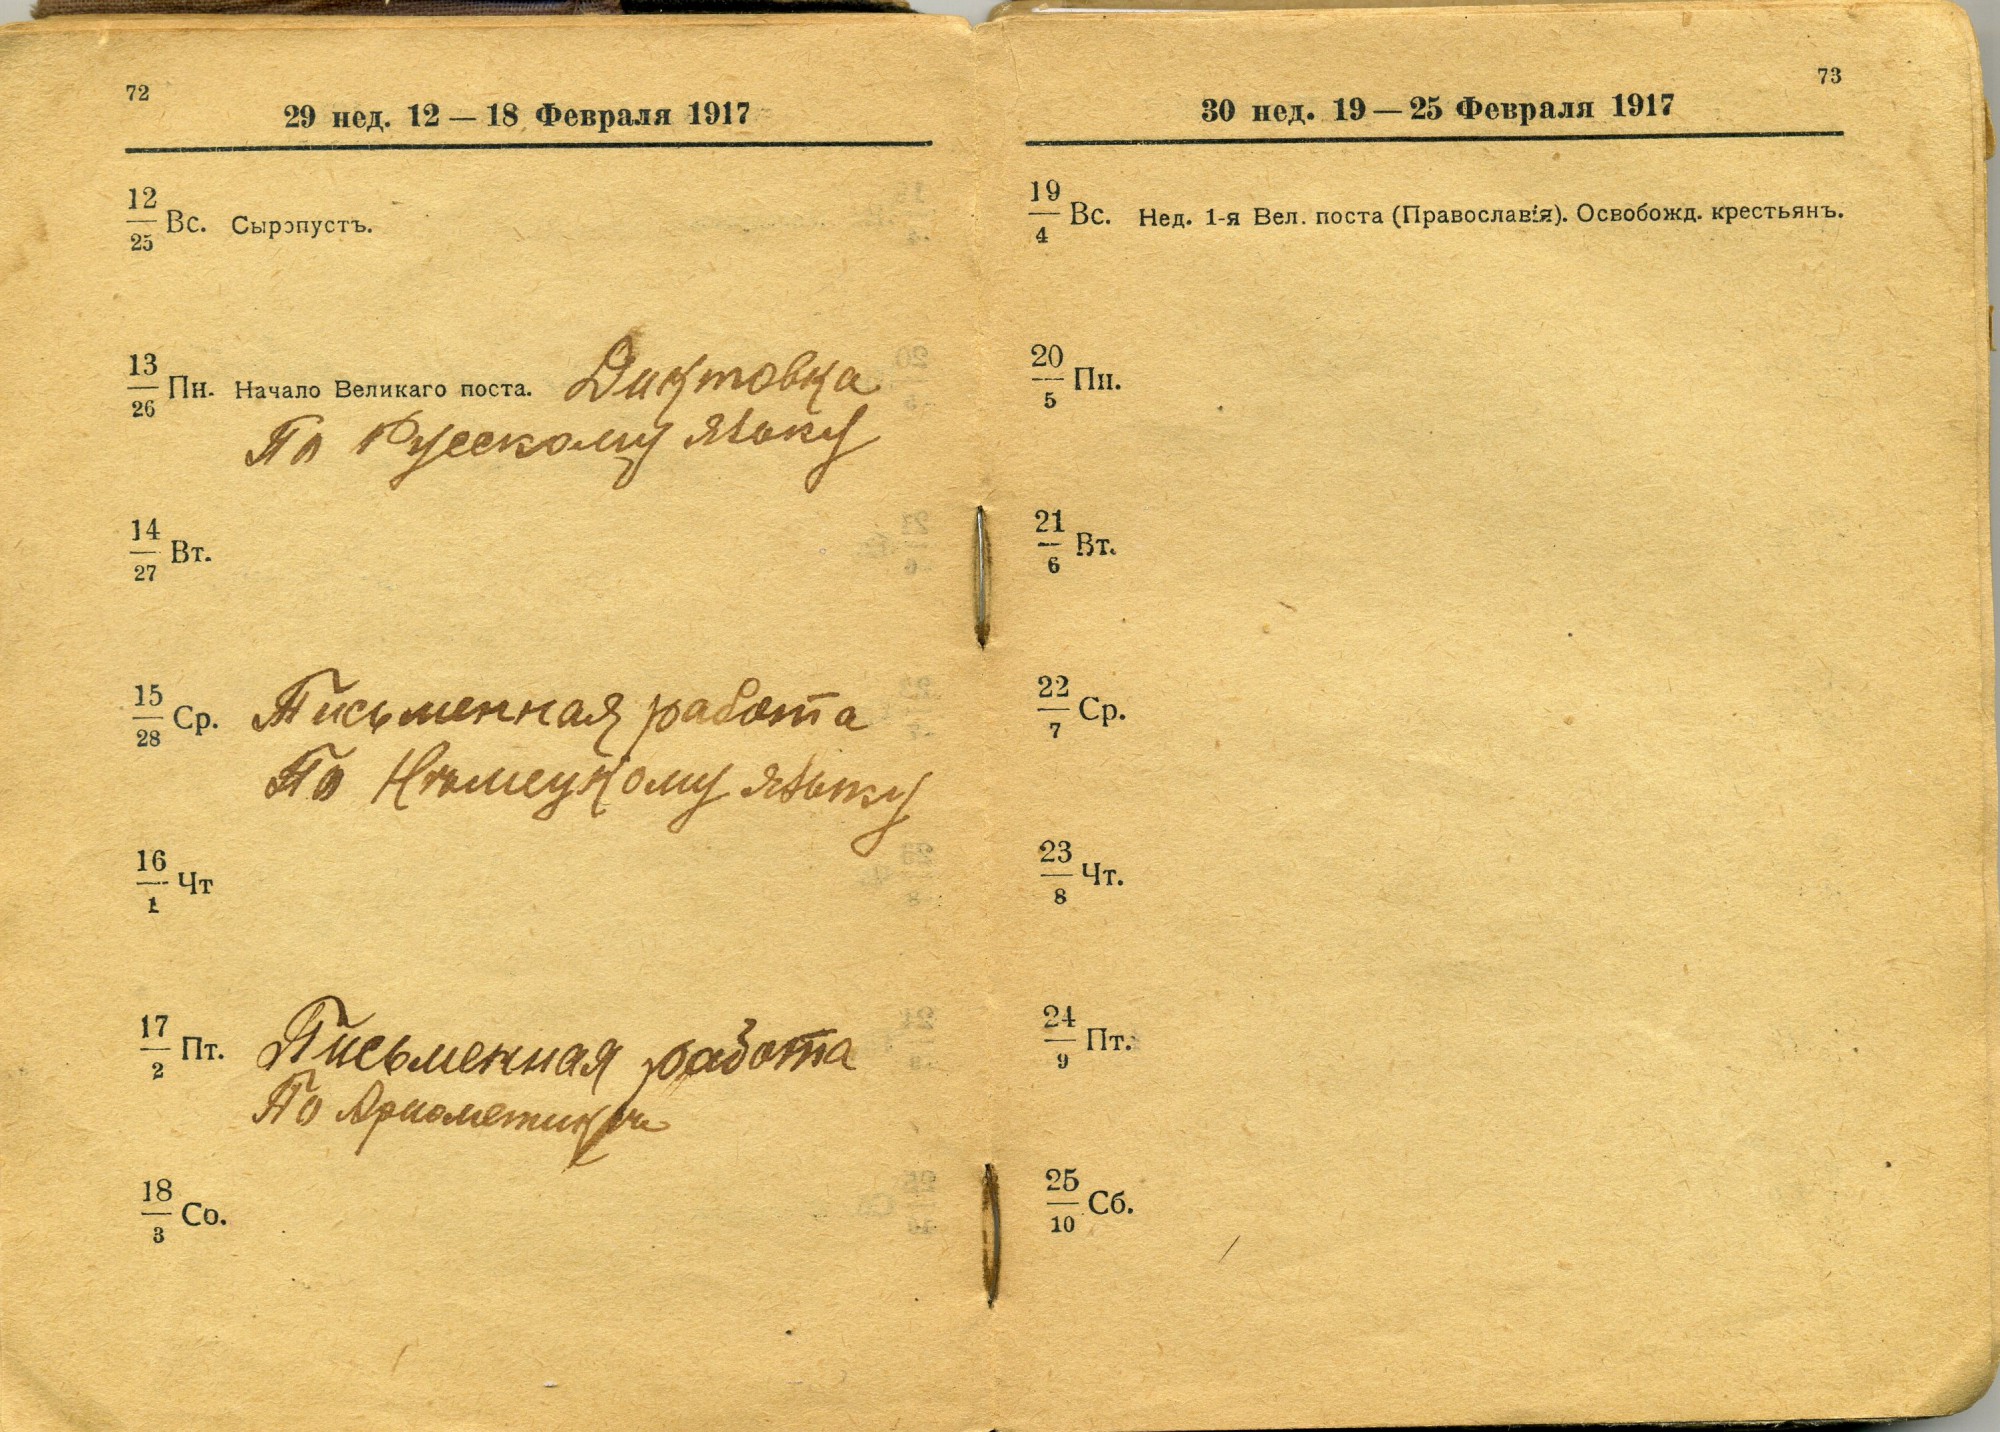 72
29 нед. 12 — 18 Февраля 1917
12/25 Вс. Сыропустъ.
13/26 Пн. Начало Великаго поста. Диктовка
По Русскому языку
14/27 Вт.
15/28 Ср. Письменная работа
По Нѣмецкому языку
16/1 Чт
17/2 Пт. Письменная работа
По Ариѳметикѣ
18/3 Со.
73
30 нед. 19 — 25 Февраля 1917
19/4 Вс. Нед. 1-я Вел. поста (Православія). Освобожд. крестьянъ.
20/5 Пн.
21/6 Вт.
22/7 Ср.
23/8 Чт.
24/9 Пт.
25/10 Сб.